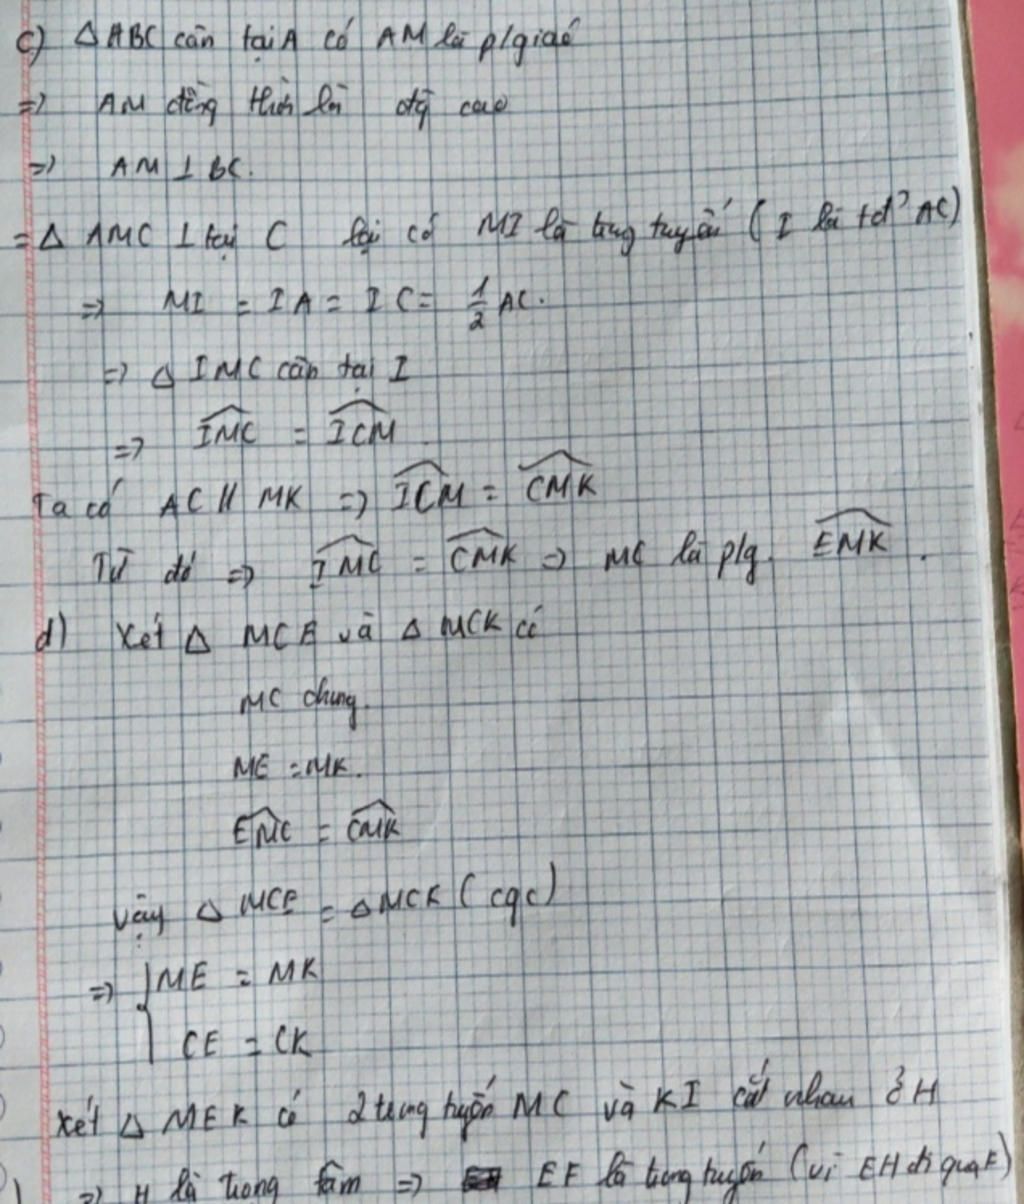 c) △ABC cân tại A có AM là p/giác
=> AM đồng thời là đg cao
=> AM ⊥ BC.
=> △ AMC ⊥ tại C lại có MI là trung tuyến (I là tđ AC)
=> MI = IA = IC = 1/2 AC.
=> △ IMC cân tại I
=> \widehat{IMC} = \widehat{ICM}
Ta có AC // MK => \widehat{ICM} = \widehat{CMK}
Từ đó => \widehat{IMC} = \widehat{CMK} => MC là p/g. \widehat{EMK}.
d) Xét △ MCE và △ MCK có
MC chung.
ME = MK.
\widehat{EMC} = \widehat{CMK}
Vậy △ MCE = △MCK (cgc)
=> { ME = MK
CE = CK
Xét △ MEK có 2 trung tuyến MC và KI cắt nhau ở H
=> H là trọng tâm => EF là trung tuyến (vì EH đi qua F)